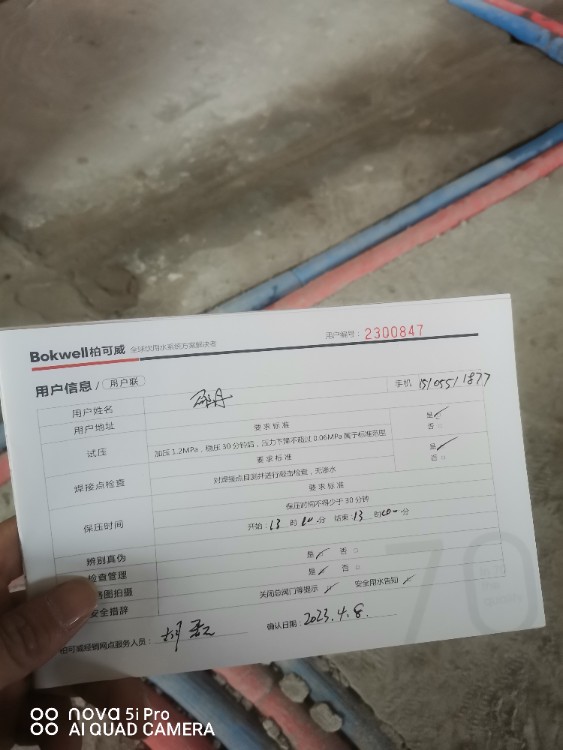 Bokwell柏可威 全球饮用水系统方案解决者 用户编号：2300847
用户信息/ 用户联
用户姓名 手机
用户地址
要求标准 是
试压 加压1.2MPa，稳压30分钟后，压力下降不超过0.06MPa属于标准范围 否
要求标准 是
焊接点检查 对焊接点目测并进行敲击检查，无渗水 否
要求标准
保压时间不得少于30分钟
保压时间 开始：13时 分 结束：13时 分
辨别真伪 是 否
检查管理 是 否
路图拍摄 关闭总阀门等提示 安全用水告知
安全措辞
柏可威经销网点服务人员： 确认日期：2023.4.8.
70
nova 5i Pro
AI QUAD CAMERA